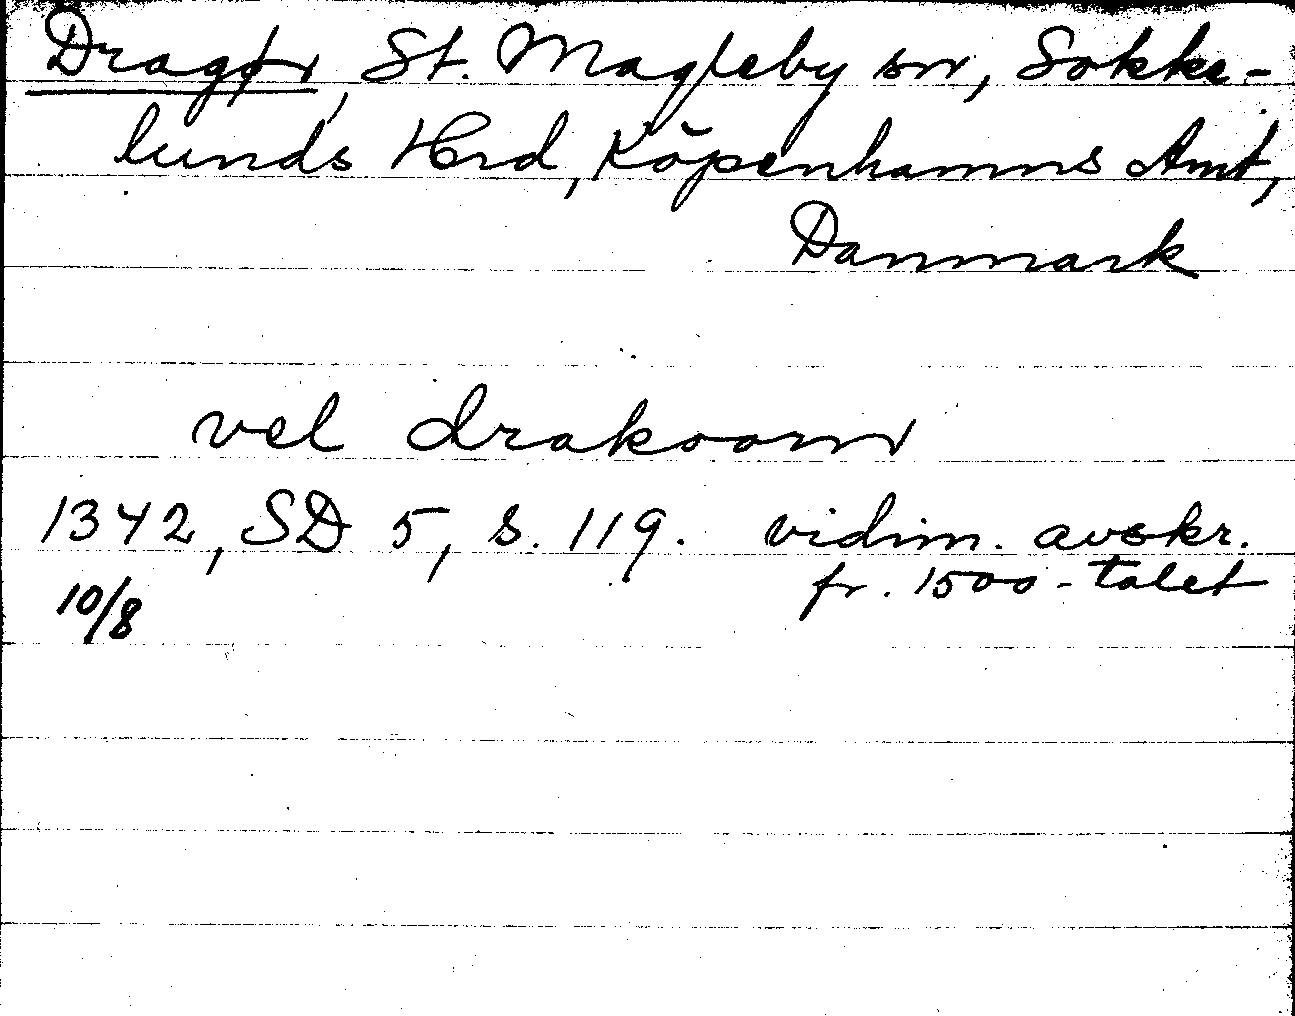 Dragør, St. Magleby sn, Sokke-
lunds Hrd, Köpenhamns Amt,
Danmark
vel drakoorn
1342, SD 5, s. 119. vidim. avskr.
10/8 fr. 1500-talet